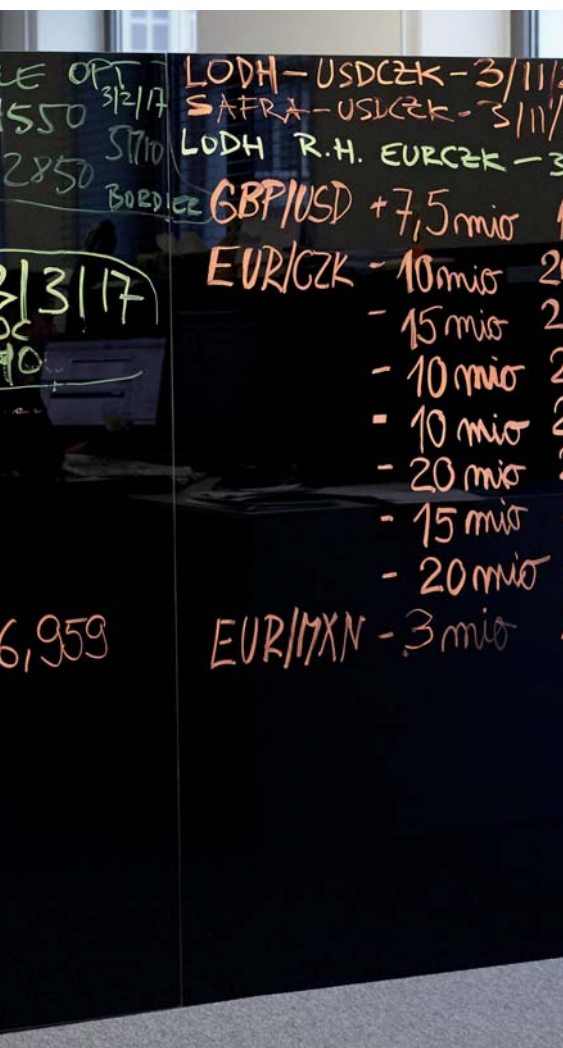 LE OPT
3/2/17
1550
51710
2850
BORDIER
3/3/17
6,959
LODH - USDCZK - 3/11/
SAFRA - USDCZK - 3/11/
LODH R.H. EURCZK - 3
GBP/USD + 7,5 mio 1
EUR/CZK - 10 mio 20
- 15 mio 2
- 10 mio 2
- 10 mio 2
- 20 mio 2
- 15 mio
- 20 mio
EUR/MXN - 3 mio